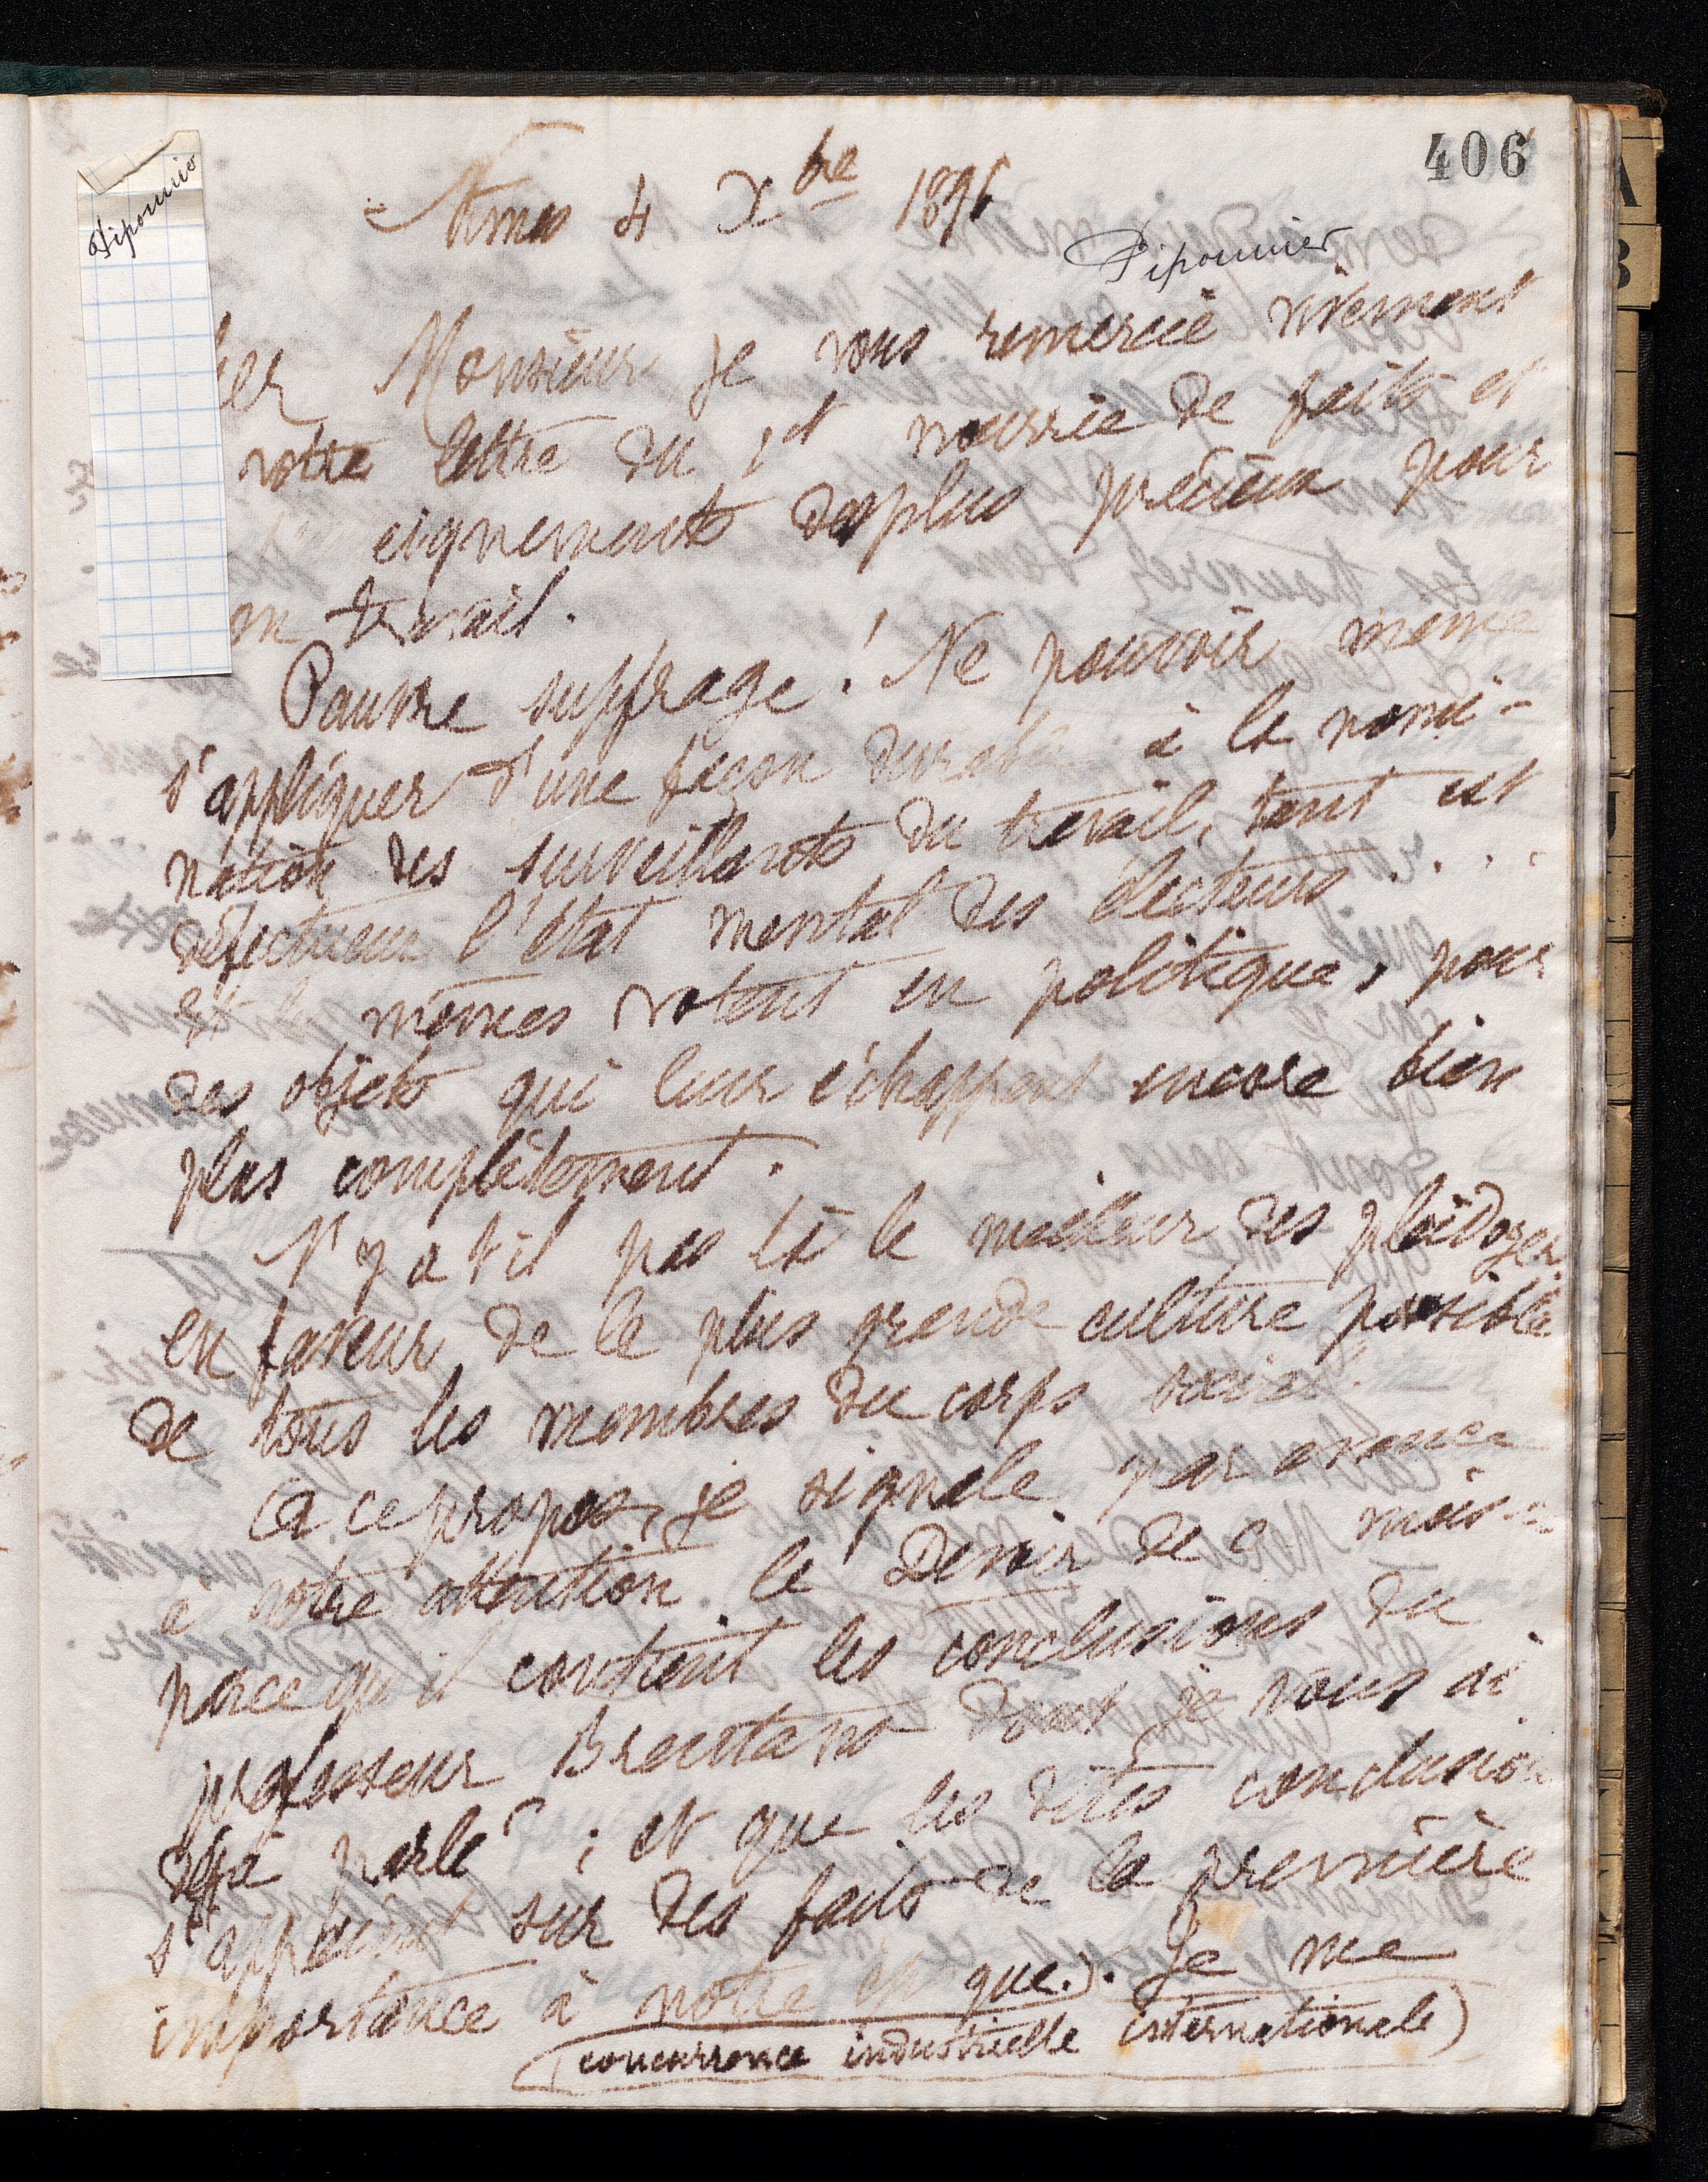 406
Piponnier
Nîmes 4 Xbre 1896
Piponnier
her Monsieur, je vous remercie vivement
votre lettre du 1er nourrie de faits et
eignements des plus précieux pour
on travail.
Pauvre suffrage! Ne pouvoir même
s'appliquer d'une façon durable à la nomi-
nation des surveillants du travail, tant est
défectueux l'état mental des électeurs....
Et les mêmes votent en politique, pour
des objets qui leur échappent encore bien
plus complètement.
N'y a t'il pas là le meilleur des plaidoyer
en faveur de la plus grande culture possible
de tous les membres du corps social.
A ce propos, je signale par avance
à votre attention le Devoir de ce mois-ci
parce qu'il contient les conclusions du
professeur Brentano dont je vous ai
déjà parlé; et que les dites conclusions
s'appuient sur des faits de la première
importance à notre époque.). Je me
(concurrence industrielle internationale)